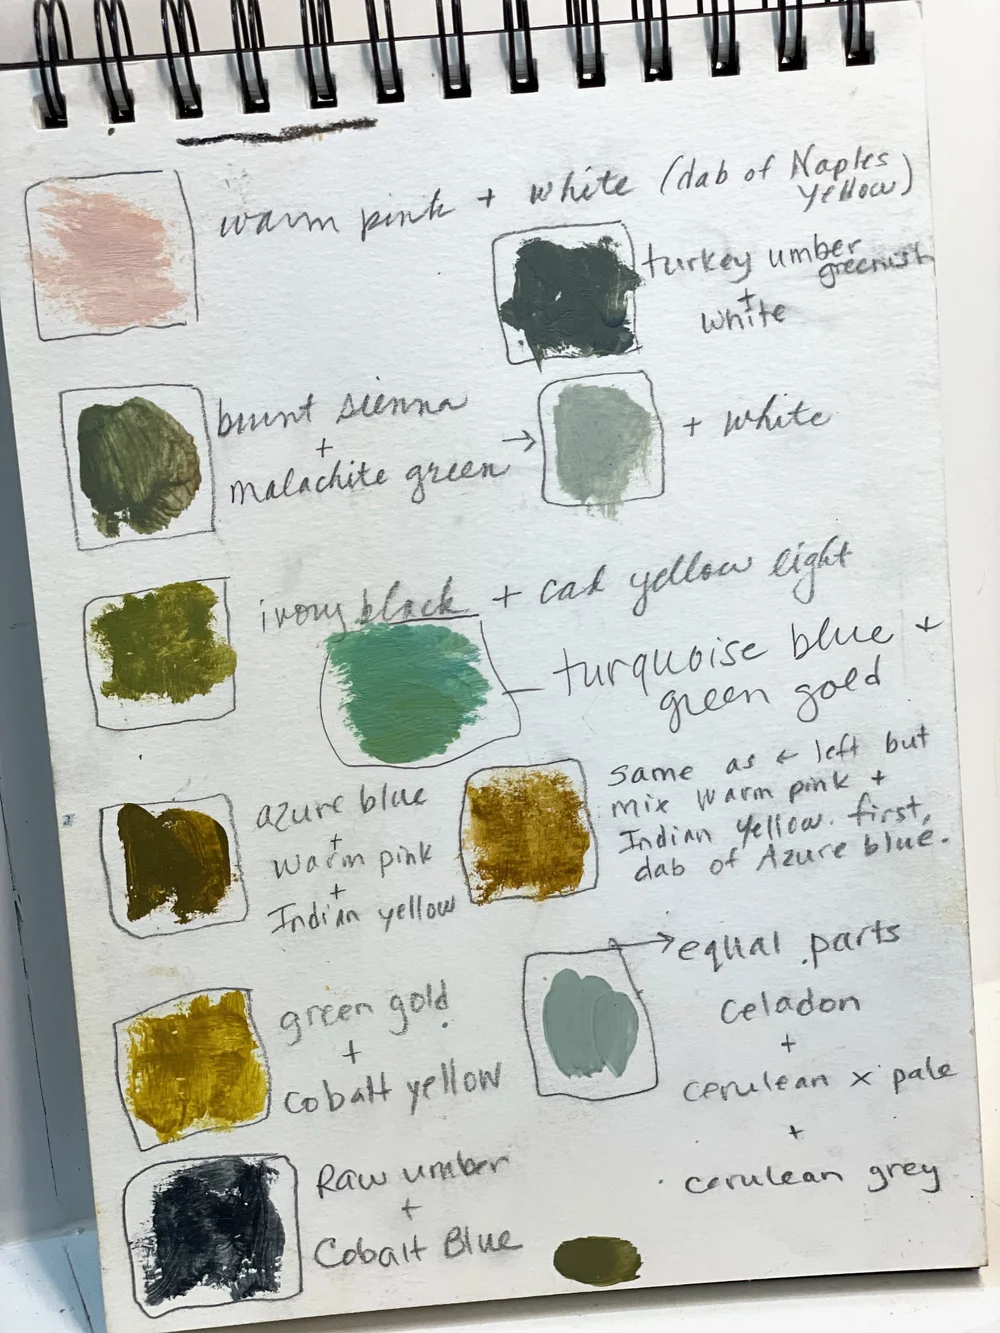 warm pink + white (dab of Naples
Yellow)
turkey umber
greenish
+
white
burnt sienna
+
malachite green →
+ white
ivory black + cad yellow light
turquoise blue +
green gold
azure blue
+
warm pink
+
Indian yellow
same as ← left but
mix warm pink +
Indian Yellow. first,
dab of Azure blue.
green gold
+
cobalt yellow
→ equal parts
celadon
+
cerulean x pale
+
cerulean grey
Raw umber
+
Cobalt Blue